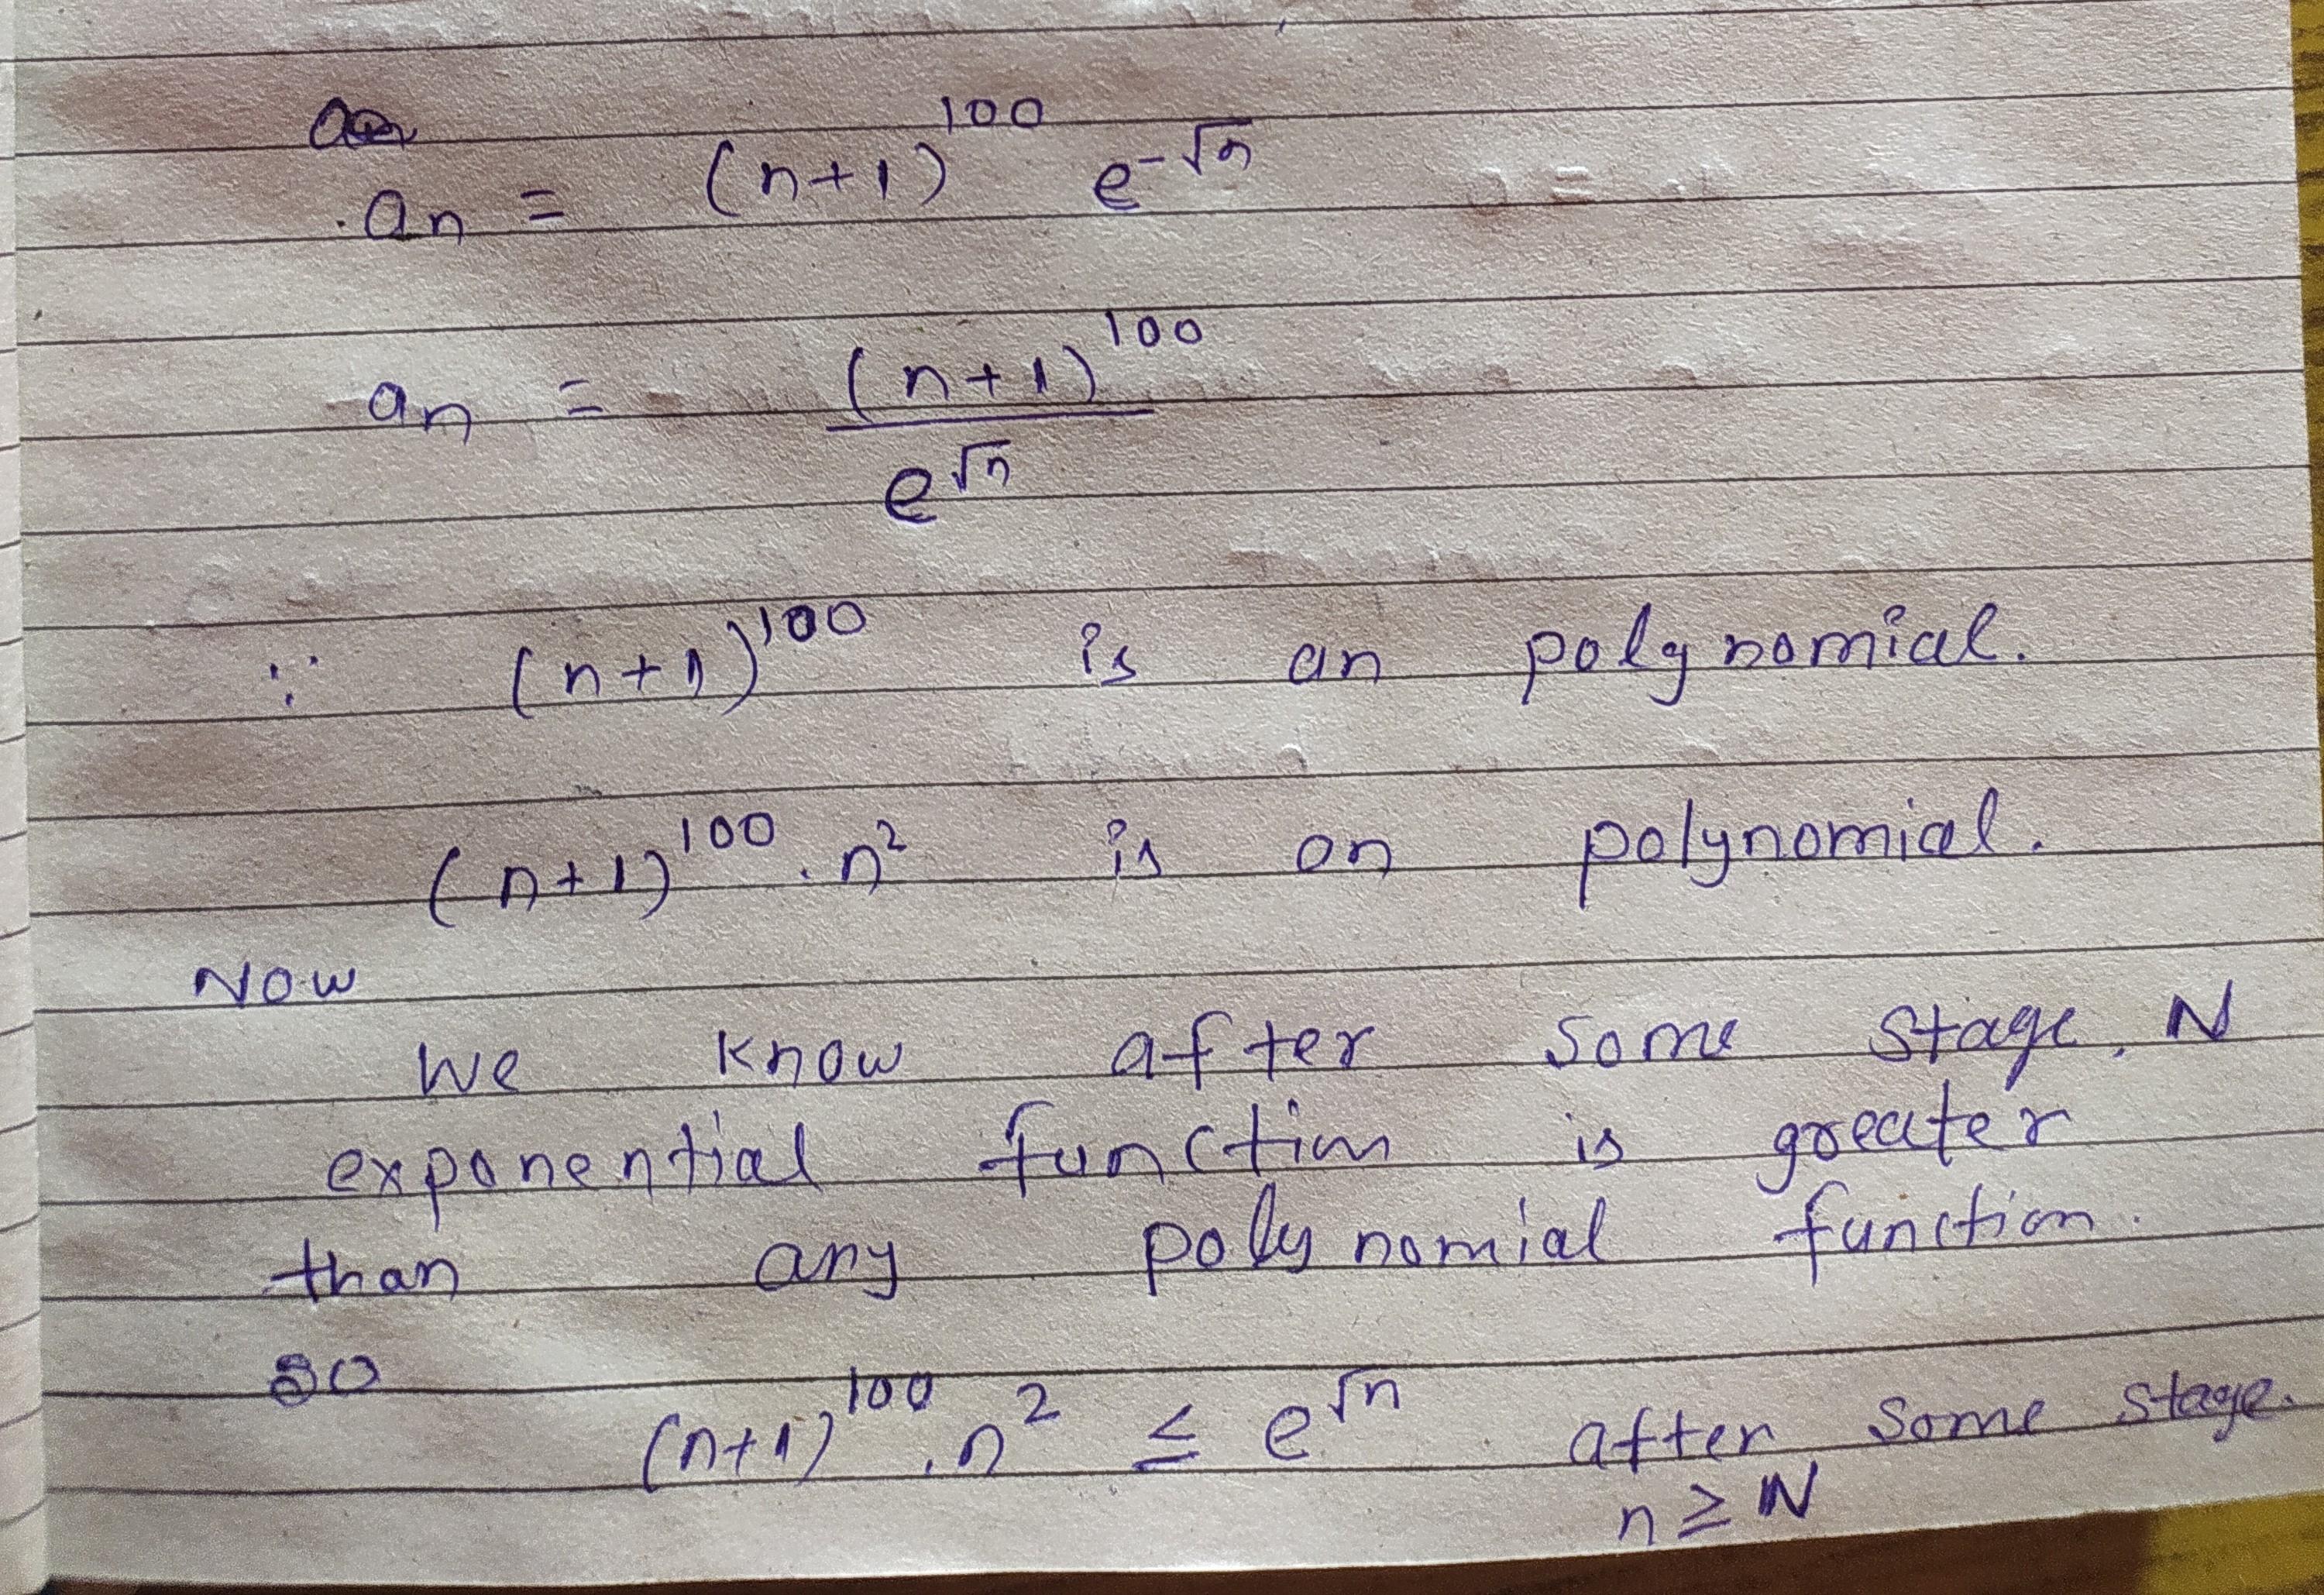 an = (n+1)^100 e^-√n
an = (n+1)^100 / e^√n
∵ (n+1)^100 is an polynomial.
(n+1)^100 . n^2 is an polynomial.
Now
we know after some stage, N
exponential function is greater
than any polynomial function.
so
(n+1)^100 . n^2 ≤ e^√n after some stage.
n ≥ N